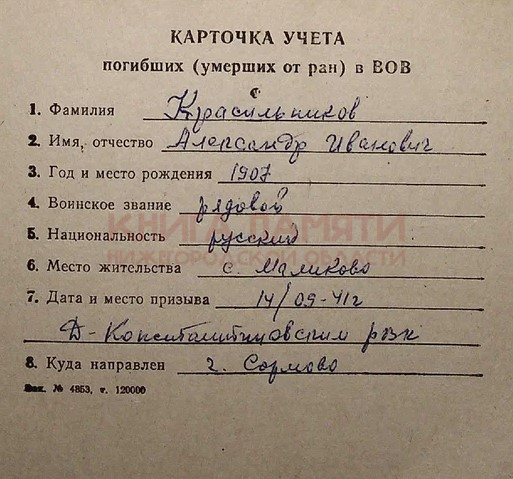 КАРТОЧКА УЧЕТА
погибших (умерших от ран) в ВОВ
1. Фамилия Красильников
2. Имя, отчество Александр Иванович
3. Год и место рождения 1907
4. Воинское звание рядовой
КНИГА ПАМЯТИ
5. Национальность русский
НИЖЕГОРОДСКОЙ ОБЛАСТИ
6. Место жительства с. Маликово
7. Дата и место призыва 14/09-41г
Д-Константиновским рвк
8. Куда направлен г. Сормово
Зак. № 4853, т. 120000